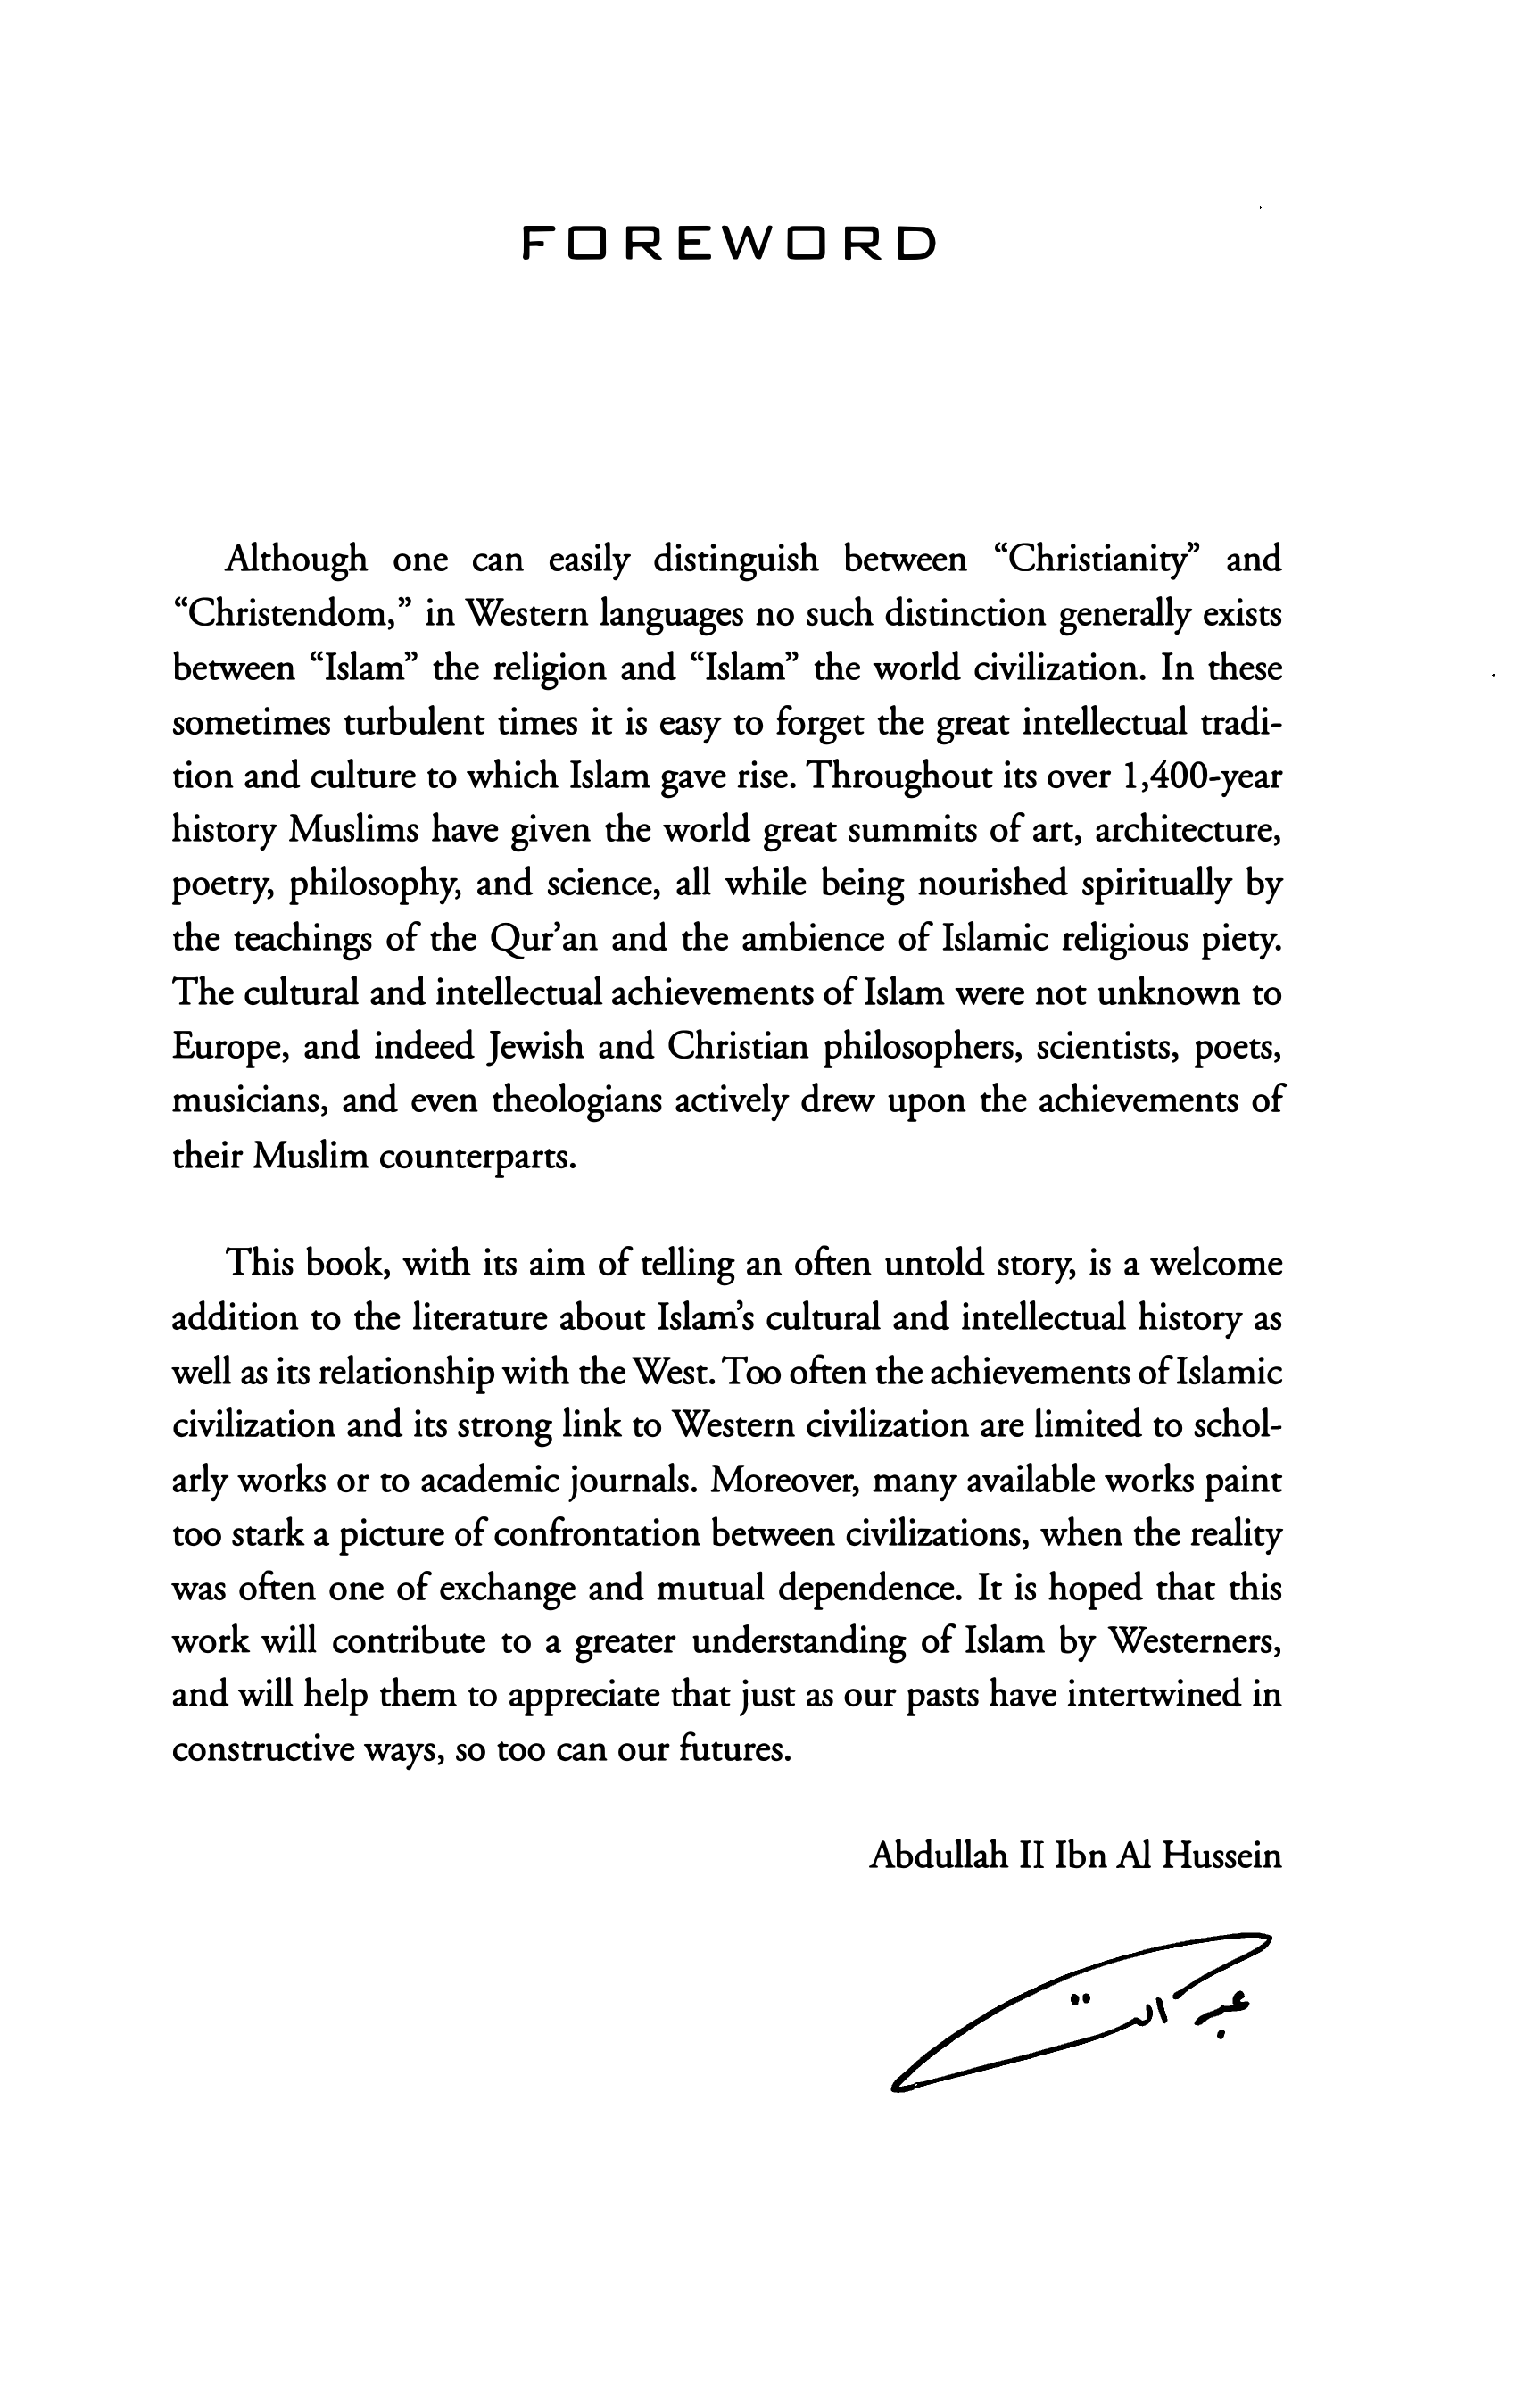 FOREWORD
Although one can easily distinguish between “Christianity” and
“Christendom,” in Western languages no such distinction generally exists
between “Islam” the religion and “Islam” the world civilization. In these
sometimes turbulent times it is easy to forget the great intellectual tradi-
tion and culture to which Islam gave rise. Throughout its over 1,400-year
history Muslims have given the world great summits of art, architecture,
poetry, philosophy, and science, all while being nourished spiritually by
the teachings of the Qur’an and the ambience of Islamic religious piety.
The cultural and intellectual achievements of Islam were not unknown to
Europe, and indeed Jewish and Christian philosophers, scientists, poets,
musicians, and even theologians actively drew upon the achievements of
their Muslim counterparts.
This book, with its aim of telling an often untold story, is a welcome
addition to the literature about Islam’s cultural and intellectual history as
well as its relationship with the West. Too often the achievements of Islamic
civilization and its strong link to Western civilization are limited to schol-
arly works or to academic journals. Moreover, many available works paint
too stark a picture of confrontation between civilizations, when the reality
was often one of exchange and mutual dependence. It is hoped that this
work will contribute to a greater understanding of Islam by Westerners,
and will help them to appreciate that just as our pasts have intertwined in
constructive ways, so too can our futures.
Abdullah II Ibn Al Hussein